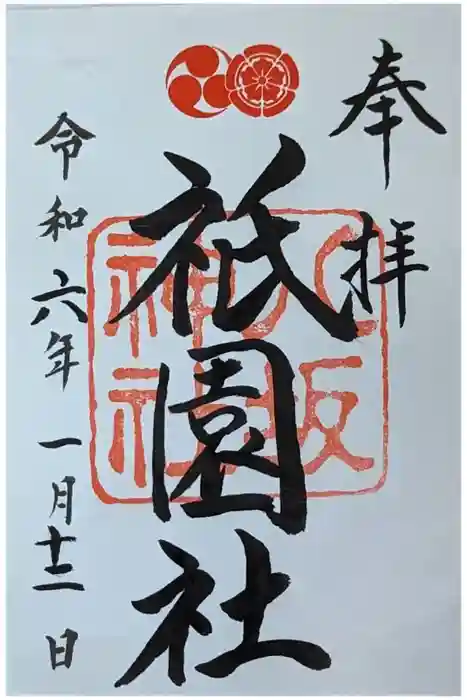 奉拝
八坂
神社
祇園社
令和六年一月十二日